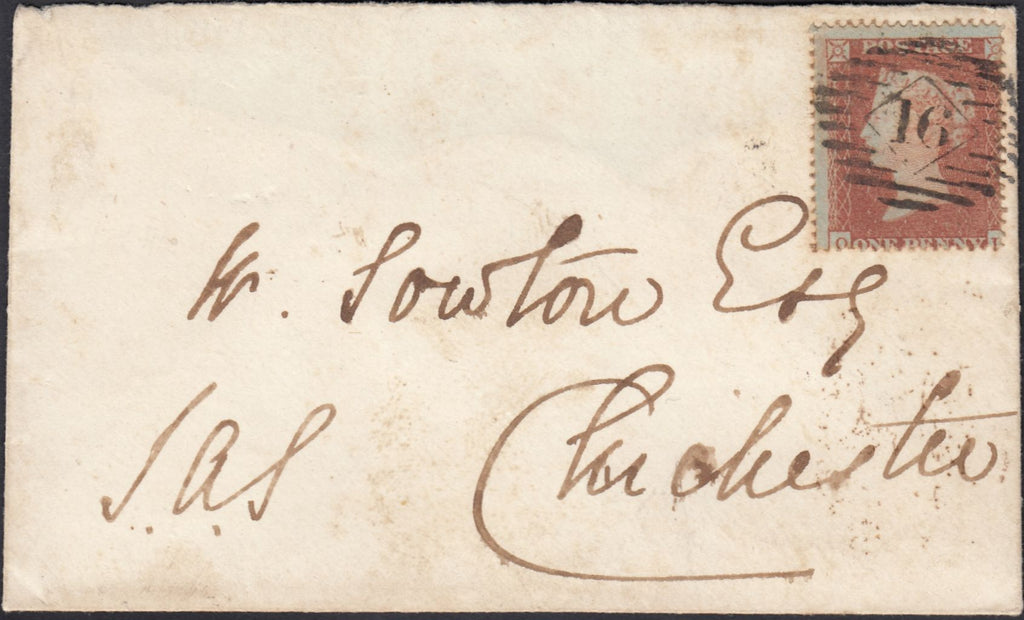 POSTAGE
16
ONE PENNY
W. Sowton Esq
J.A.S
Chichester